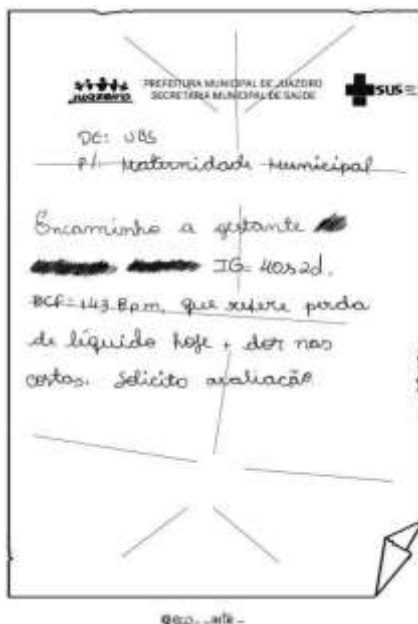 JUAZEIRO
PREFEITURA MUNICIPAL DE JUAZEIRO
SECRETARIA MUNICIPAL DE SAÚDE
SUS
DE: UBS
P/: Maternidade Municipal
Encaminho a gestante
IG= 40s2d.
BCF=143 Bpm, que refere perda
de líquido hoje + dor nas
costas. Solicito avaliação